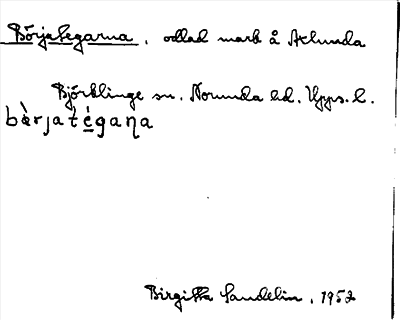 Börjategarna, odlad mark å Aelunda
Björklinge sn. Norunda hd. Upps. l.
bèrjatégaɳa
Birgitta Sandelin, 1952